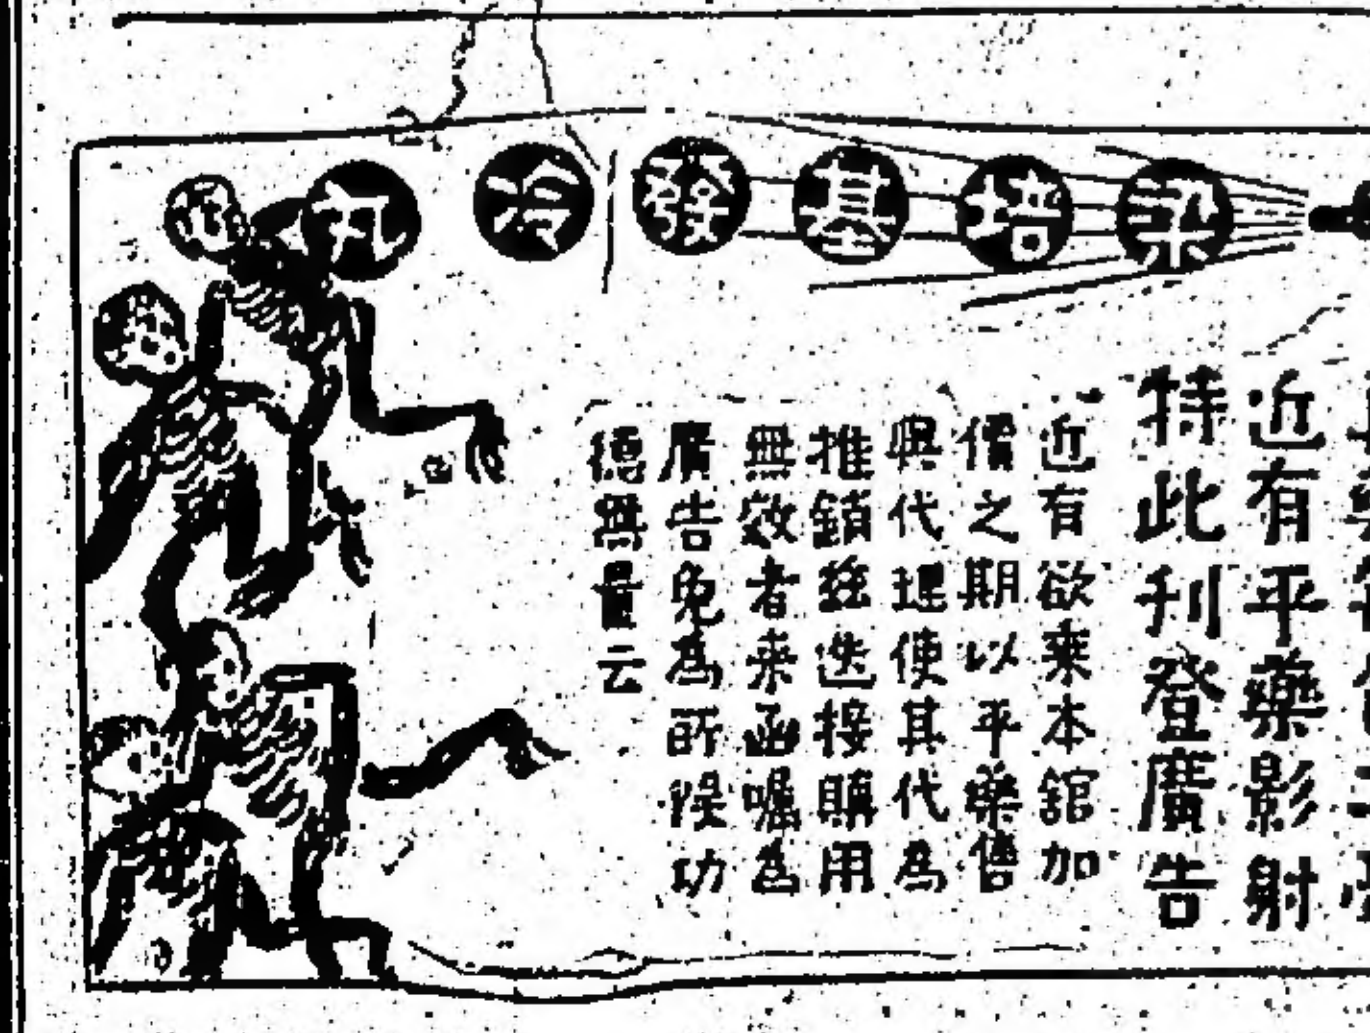 梁培基發冷丸
近有平藥影射
特此刋登廣告
近有欲乘本舘加
價之期以平藥售
與代理使其代為
推銷茲迭接購用
無效者來函囑為
廣告免為所悞功
德無量云